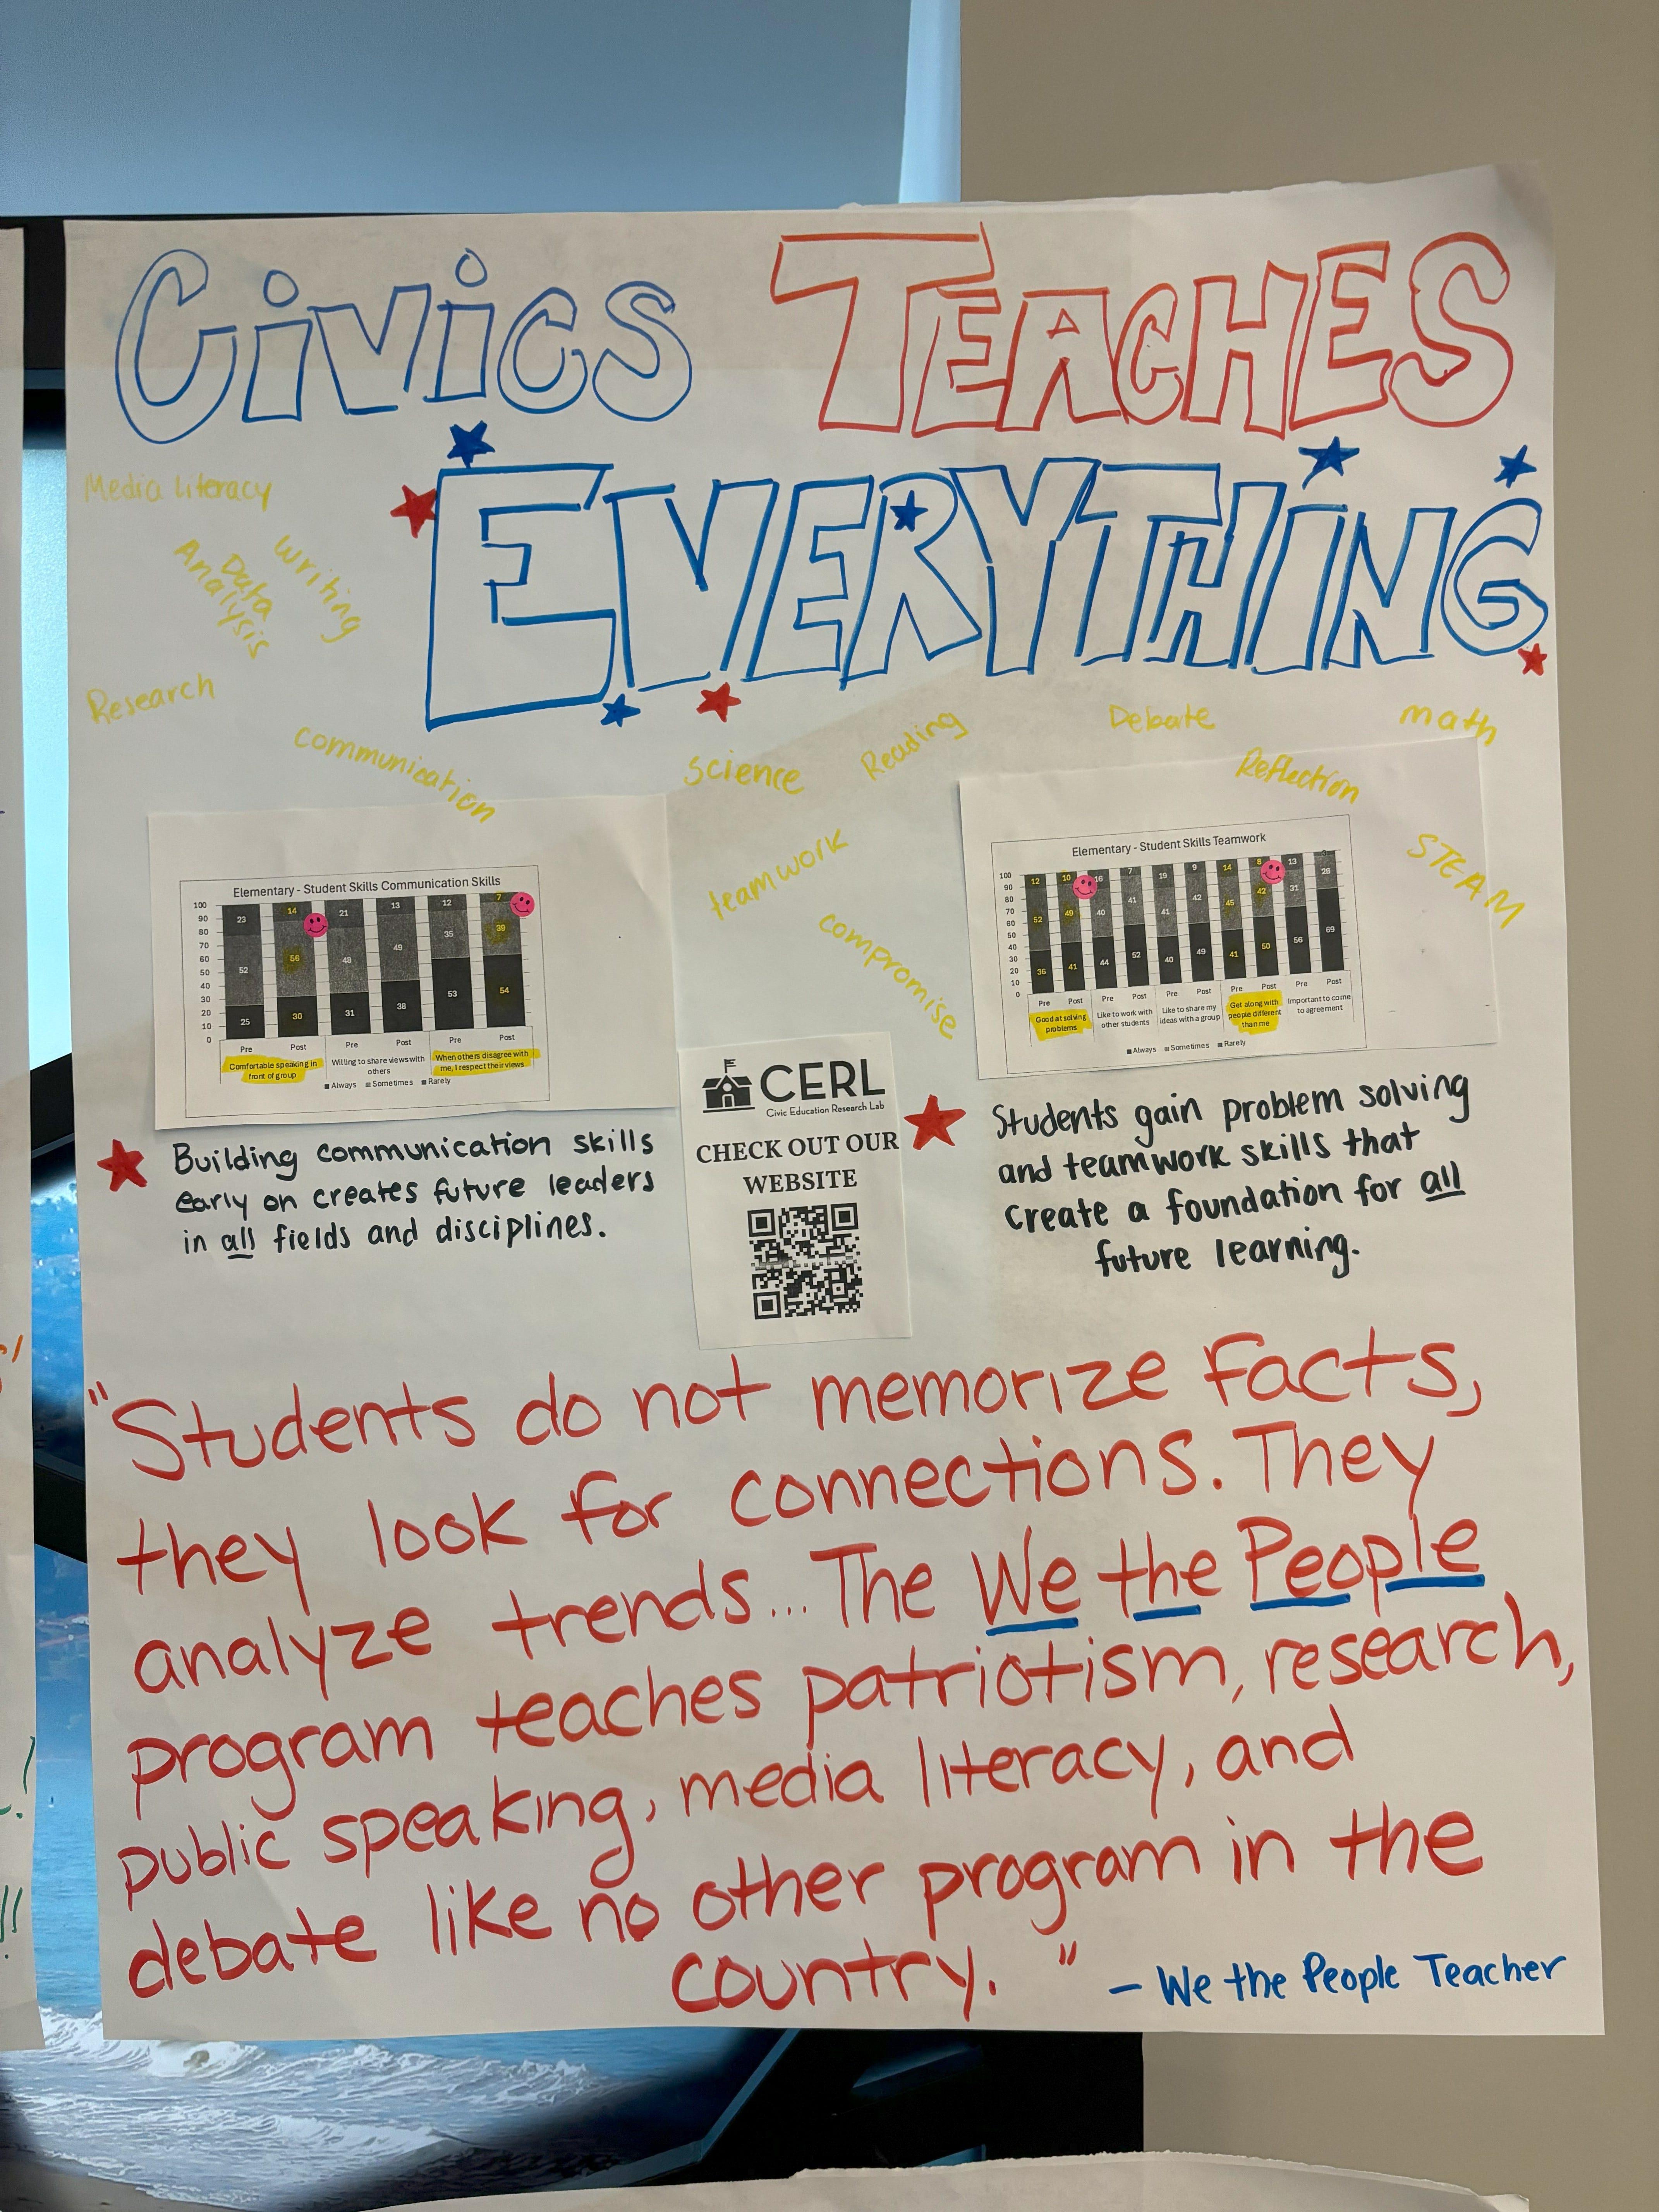 Civics TEACHES
EVERYTHING
Media literacy
Writing
Data
Analysis
Research
communication
Science
Reading
Debate
math
Reflection
STEAM
teamwork
compromise
Elementary - Student Skills Communication Skills
100
90
80
70
60
50
40
30
20
10
0
23 14 21 13 12 7
52 56 48 49 35 39
25 30 31 38 53 54
Pre Post Pre Post Pre Post
Comfortable speaking in front of group
Willing to share views with others
When others disagree with me, I respect their views
Always Sometimes Rarely
Elementary - Student Skills Teamwork
100
90
80
70
60
50
40
30
20
10
0
12 10 16 7 19 9 14 8 13 3
52 49 40 41 41 42 45 42 31 28
36 41 44 52 40 49 41 50 56 69
Pre Post Pre Post Pre Post Pre Post Pre Post
Good at solving problems
Like to work with other students
Like to share my ideas with a group
Get along with people different than me
Important to come to agreement
Always Sometimes Rarely
Building communication skills
early on creates future leaders
in all fields and disciplines.
CERL
Civic Education Research Lab
CHECK OUT OUR
WEBSITE
Students gain problem solving
and teamwork skills that
create a foundation for all
future learning.
"Students do not memorize facts,
they look for connections. They
analyze trends... The We the People
program teaches patriotism, research,
public speaking, media literacy, and
debate like no other program in the
country."
- We the People Teacher